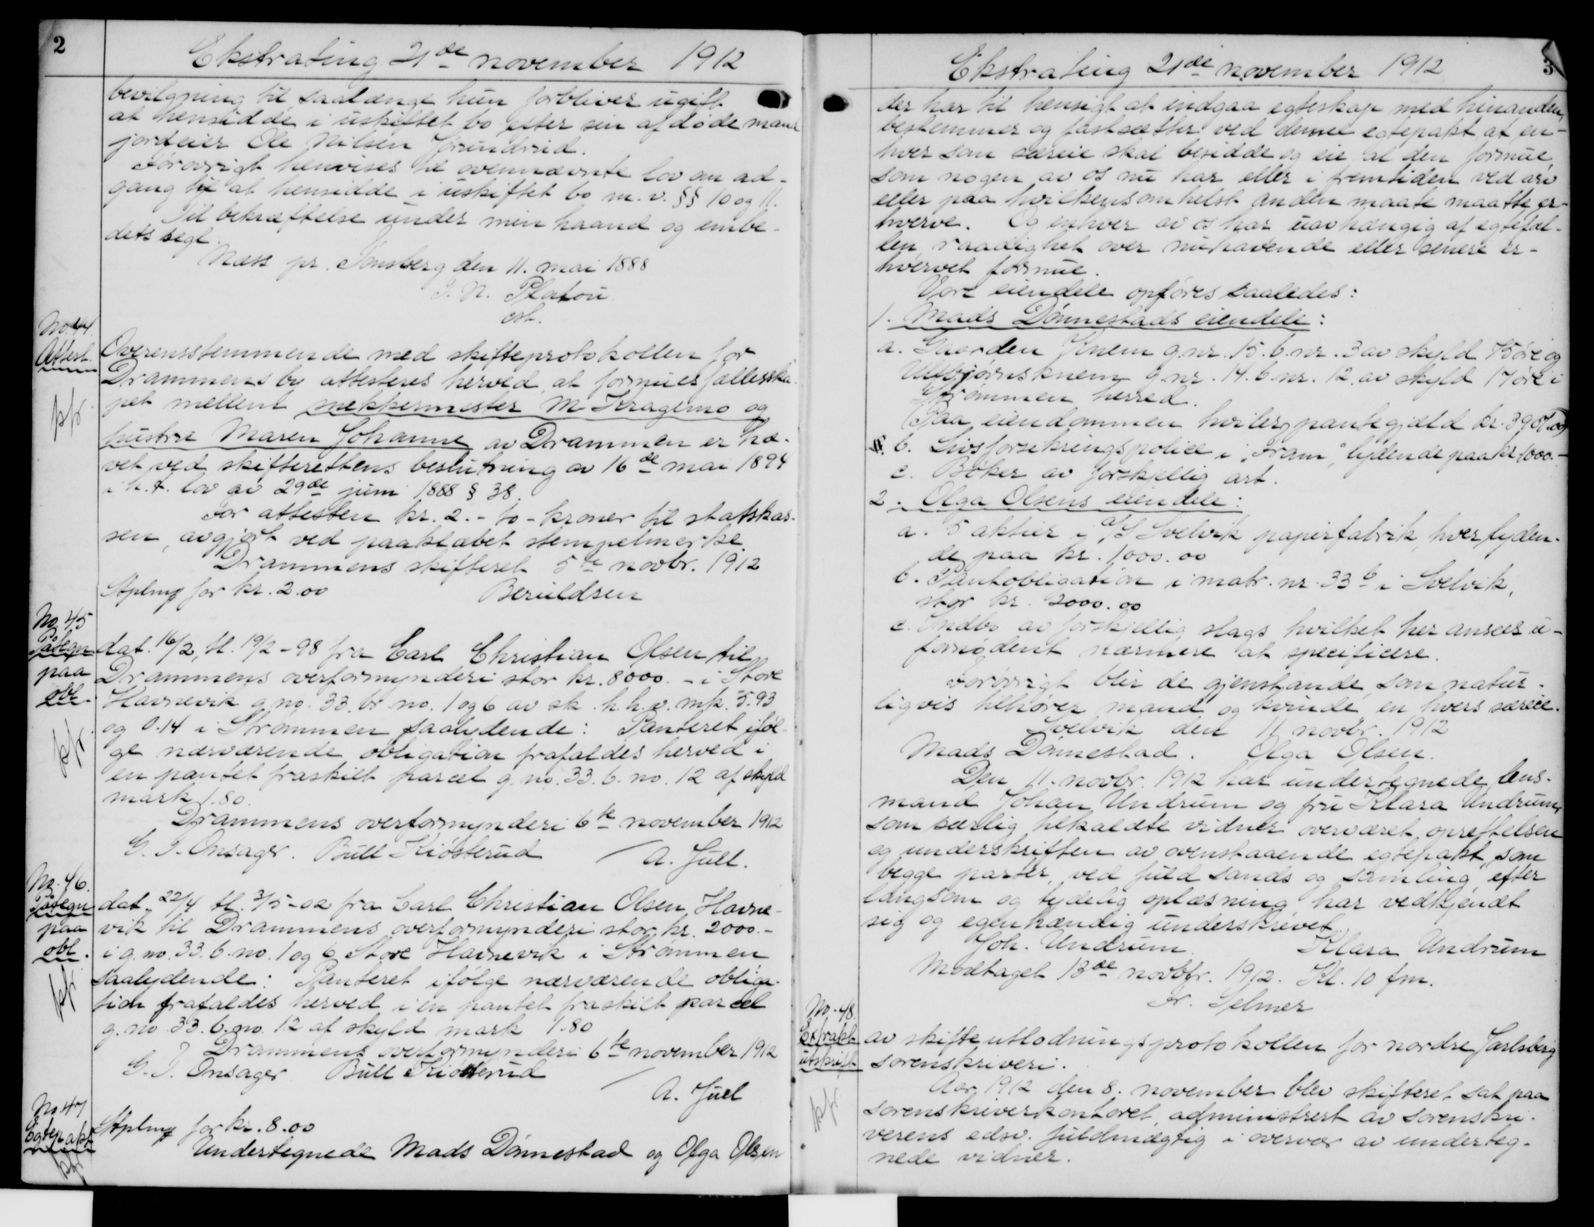 2
Ekstrating 21de november 1912
bevilgning til saalænge hun forbliver ugift
at hensidde i uskiftet bo efter sin afdøde mand
jordeier Ole Nilsen
Forøvrigt henvises til ovennævnte lov om ad-
gang til at hensidde i uskiftet bo m.v. §§ 10 og 11.
Til bekræftelse under min haand og embe-
dets segl.
Næss pr. Tønsberg den 11. mai 1888
J. N. Platou
cst.
No 44
Attest
pfr.
Overensstemmende med skifteprotokollen for
Drammens by attesteres herved at formuesfællesska-
pet mellem mekkermester M Kragemo og
hustru Maren Johanne av Drammen er hæ-
vet ved skifterettens beslutning av 16de mai 1894
i h.t. lov av 29de juni 1888 § 38.
For attesten kr. 2.- to - kroner til statskas-
sen, avgjort ved paaklæbet stempelmerke.
Drammens skifteret 5te novbr. 1912
Stplmrk for kr. 2.00 Beruldsen
No 45
Paategn
paa
obl.
pfr.
dat. 16/2, tl. 19/2 - 98 fra Carl Christian Olsen til
Drammens overformynderi stor kr. 8000.- i Store
Havnevik g.no. 33. br no. 1 og 6 av sk. h.h.v. mk. 5.93
og 0.14 i Strømmen saalydende: Panteret iføl-
ge nærværende obligation frafaldes herved i
en pantet fraskilt parcel g.no. 33. b.no. 12 af skyld
mark 1.80.
Drammens overformynderi 6te november 1912
G. J. Onsager. Bull Kiøsterud
A. Juell.
No. 46.
Paategn
paa
obl.
pfr.
dat. 22/4 tl. 3/5 - 02 fra Carl Christian Olsen Havne-
vik til Drammens overformynderi stor kr. 2000.-
i g.no. 33. b.no. 1 og 6 Store Havnevik i Strømmen
saalydende: Panteret ifølge nærværende obliga-
tion frafaldes herved i en pantet fraskilt parcel
g.no 33. b.no. 12 af skyld mark 1.80
Drammens overformynderi 6te november 1912
G. J. Onsager Bull Kiøsterud
A. Juel
No 47
Egtepakt
pfr.
Stplmrk for kr. 8.00
Undertegnede Mads Dønnestad og Olga Olsen
3
Ekstrating 21de november 1912
der har til hensigt at indgaa egteskap med hinanden,
bestemmer og fastsætter ved denne egtepakt at en-
hver som særeie skal besidde og eie al den formue,
som nogen av os nu har eller i fremtiden ved arv
eller paa hvilkensomhelst anden maate maatte er-
hverve. Og enhver av os har uavhængig af egtefæl-
len raadighet over nuhavende eller senere er-
hvervet formue.
Vore eiendele opføres saaledes:
1. Mads Dønnestads eiendele:
a. Gaarden Knem g.nr. 15. b.nr. 3 av skyld 75 øre og
Uebjørnsknem g.nr. 14. b.nr. 12. av skyld 17 øre i
Strømmen herred.
(Paa eiendommen hviler pantegjæld kr. 3900.00)
b. Livsforsikringspolice i "Fram", lydende paa kr 1000.-
c. Bøker av forskjellig art.
2. Olga Olsens eiendele:
a. 5 aktier i A/S Svelvik papirfabrik hver lyden-
de paa kr. 1000.00
b. Pantobligation i matr. nr. 33 b i Svelvik,
stor kr. 2000.00
c. Indbo av forskjellig slags hvilket her ansees u-
fornødent nærmere at specificere.
Forøvrigt blir de gjenstande som natur-
ligvis tilhører mand og kvinde en hvers særeie.
Svelvik den 11 novbr. 1912
Mads Dønnestad. Olga Olsen.
Den 11. novbr. 1912 har undertegnede lens-
mand Johan Undrum og fru Klara Undrum,
som særlig tilkaldte vidner overværet oprettelsen
og underskriften av ovenstaaende egtepakt, som
begge parter, ved fuld sands og samling, efter
langsom og tydelig oplæsning har vedkjendt
sig og egenhændig underskrevet.
Joh. Undrum Klara Undrum
Modtaget 13de novbr. 1912. Kl. 10 fm.
Fr. Selmer
No. 48.
Extrakt
utskrift
pfr
av skifteutlodningsprotokollen for nordre Jarlsberg
sorenskriveri.
Aar 1912 den 8. november blev skifteret sat paa
sorenskriverkontoret, administrert av sorenskri-
verens edsv. fuldmægtig i overvær av underteg-
nede vidner.